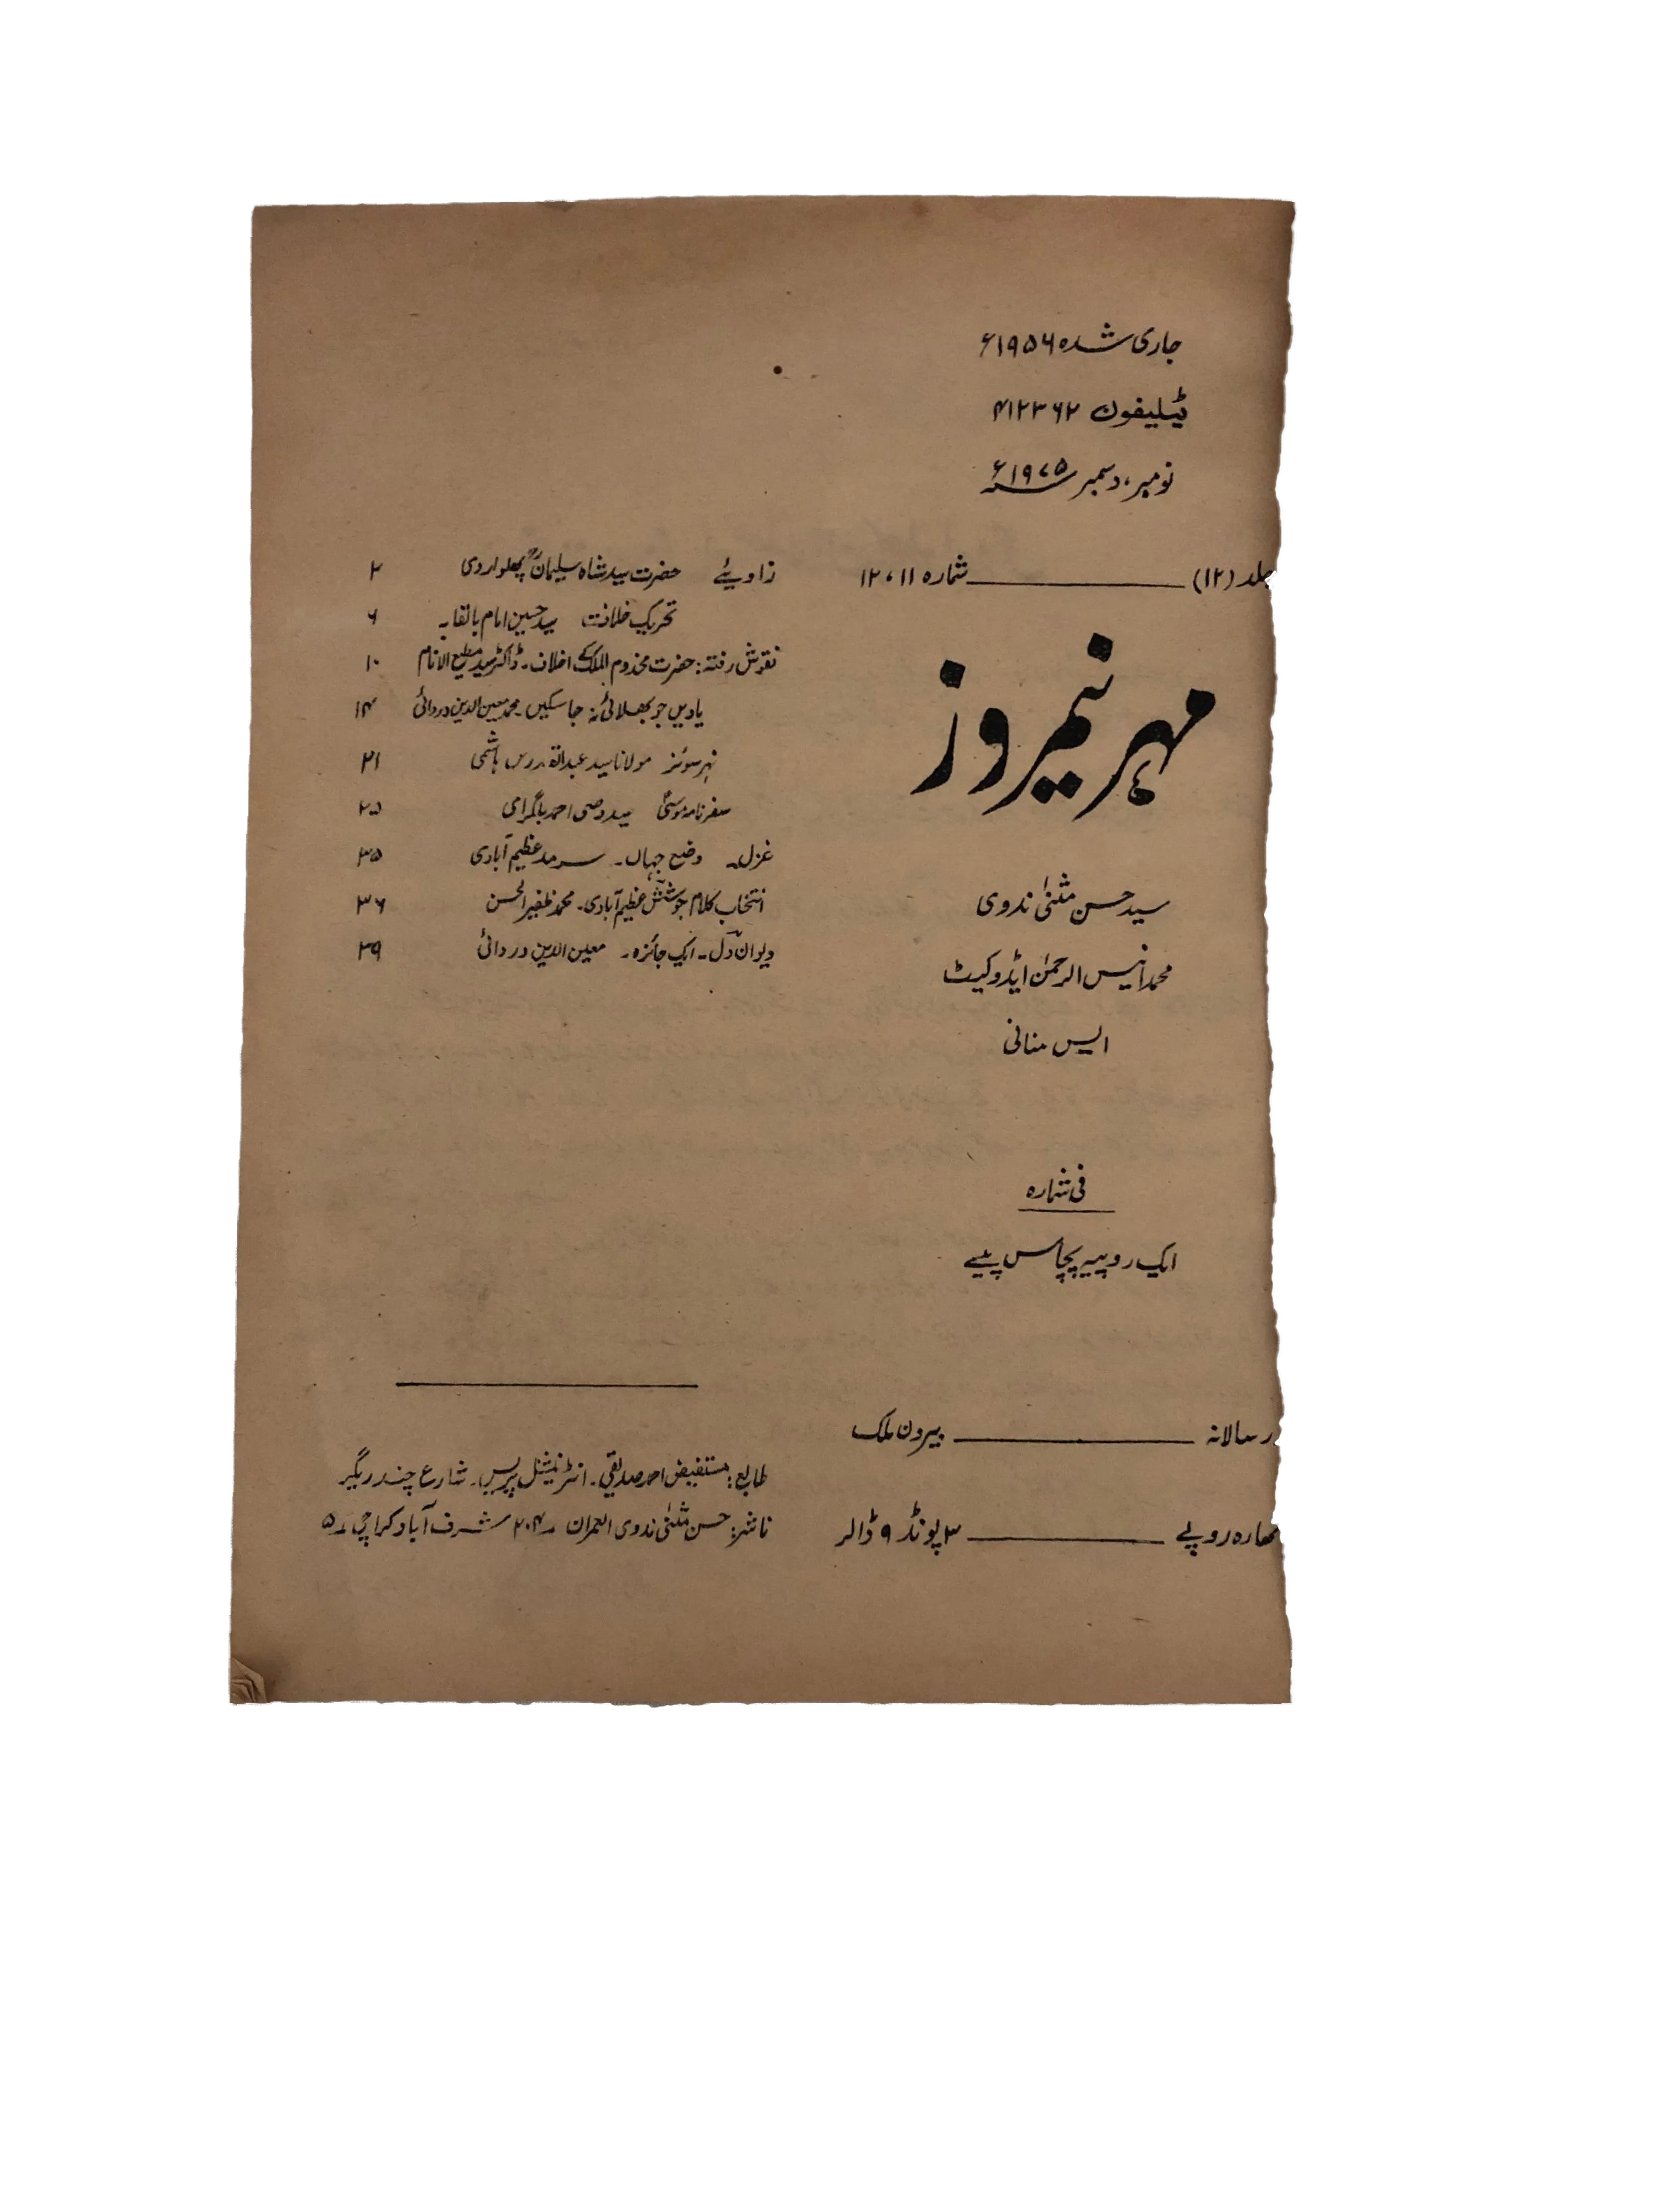 جاری شدہ ۱۹۵۶ء
ٹیلیفون ۴۱۲۳۶۲
نومبر، دسمبر ۱۹۷۵ء
جلد (۱۲) ــــــ شمارہ ۱۱، ۱۲
مہر نیمروز
سید حسن مثنیٰ ندوی
محمد انیس الرحمٰن ایڈوکیٹ
ایس منانی
فی شمارہ
ایک روپیہ پچاس پیسے
سالانہ ــــــ بیرون ملک
روپے ــــــ ۳ پونڈ ۹ ڈالر
زاویئے حضرت سید شاہ سلیمانؒ پھلواروی ۲
تحریک خلافت سید حسین امام بالقابہ ۶
نقوش رفتہ: حضرت مخدوم الملک کے اخلاف۔ ڈاکٹر سید مطیع الانام ۱۰
یادیں جو بھلائی نہ جا سکیں۔ محمد معین الدین دردائی ۱۴
نہر سوئز مولانا سید عبدالقدوس ہاشمی ۲۱
سفرنامہ موسیٰ سید وصی احمد بلگرامی ۲۵
غزل۔ وضع جہاں۔ سرمد عظیم آبادی ۳۵
انتخاب کلام جوشش عظیم آبادی۔ محمد ظفیر الحسن ۳۶
دیوان دل۔ ایک جائزہ۔ معین الدین دردائی ۳۹
طابع: مستفیض احمد صدیقی۔ انٹرنیشنل پریس۔ شارع چندریگر
ناشر: حسن مثنیٰ ندوی العمران ۲۰۴ شرف آباد کراچی ۵